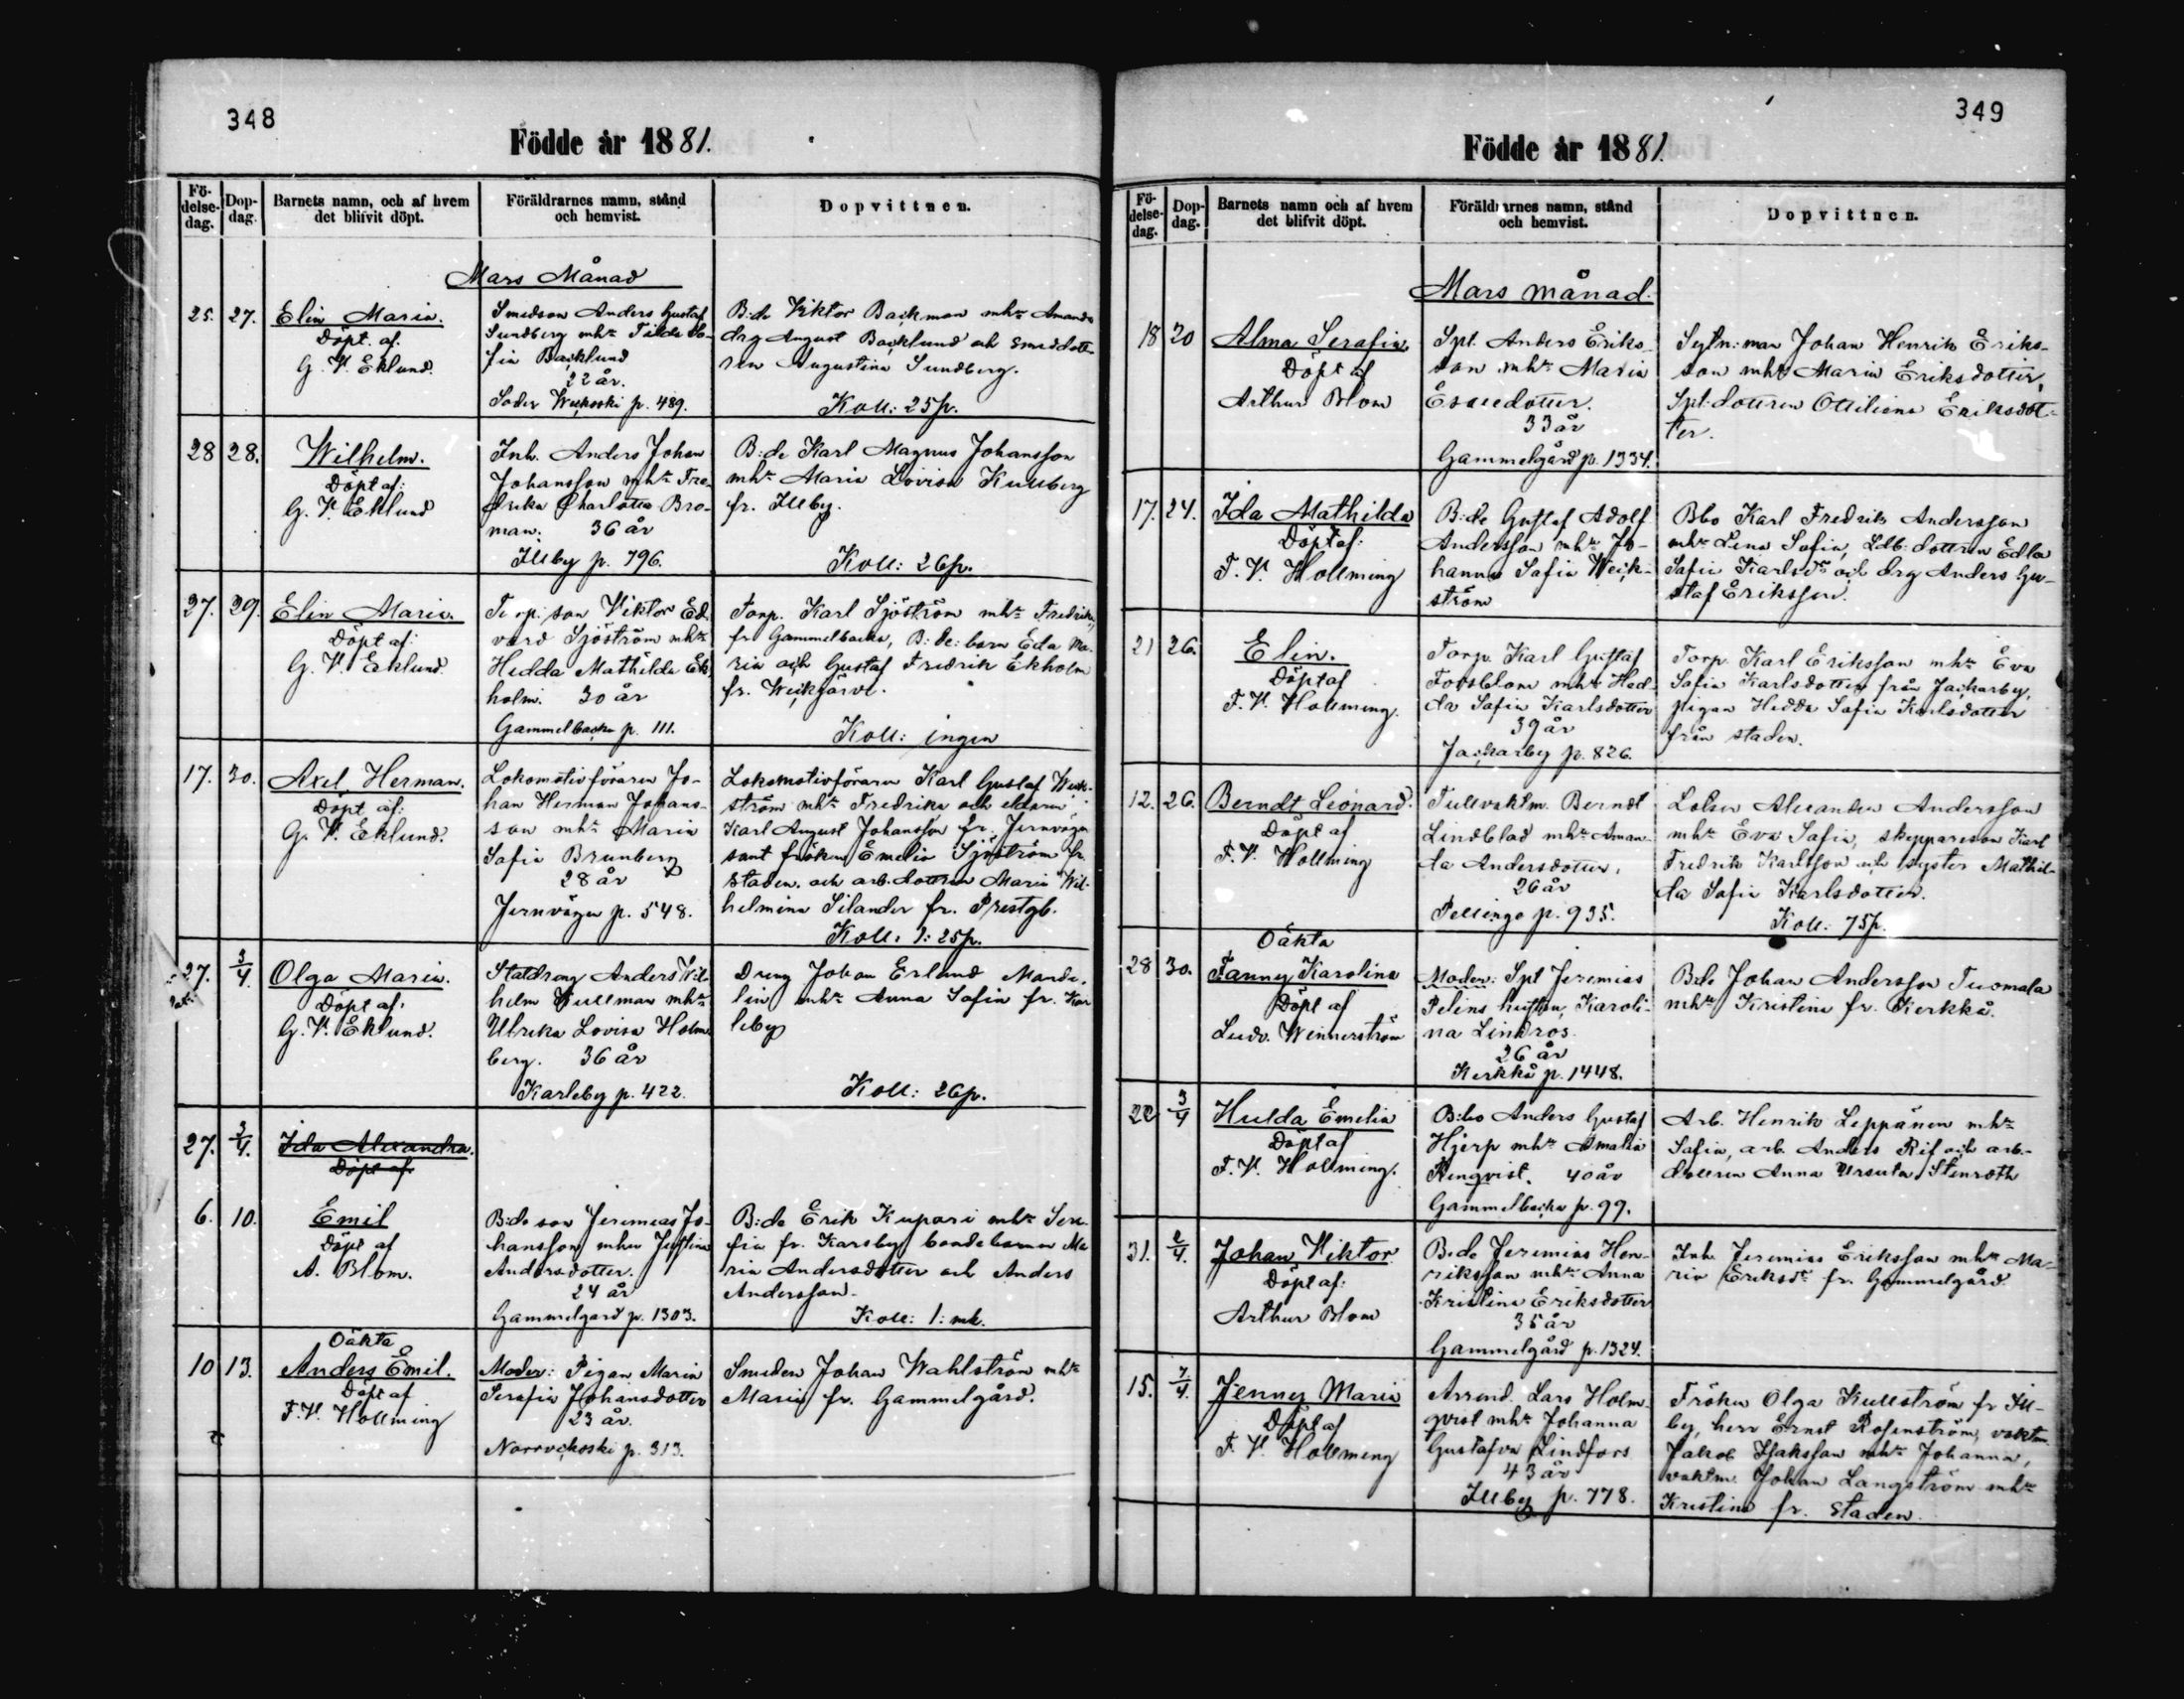 348
Födde år 1881.
Fö-
delse-
dag.
Dop-
dag.
Barnets namn, och af hvem
det blifvit döpt.
Föräldrarnes namn, stånd
och hemvist.
Dopvittnen.
Mars Månad
25. 27. Elin Maria.
Döpt. af.
G. V. Eklund.
Smedson Anders Gustaf
Sundberg mhu Tilda So-
fia Backlund
22 år.
Söder Weckoski p. 489.
B:de Viktor Backman mhu Amanda
drg August Backlund och smeddotte-
ren Augustina Sundberg.
Koll: 25 p.
28 28. Wilhelm.
Döpt af:
G. V. Eklund
Inh. Anders Johan
Johansson mhu Fre-
drika Charlotta Bro-
man. 36 år
Illby p. 796.
B:de Karl Magnus Johansson
mhu Maria Lovisa Kullberg
fr. Illby.
Koll: 26 p.
27. 29. Elin Maria.
Döpt af:
G. V. Eklund
Torp. son Viktor Ed-
vard Sjöström mhu
Hedda Mathilda Ek-
holm. 30 år
Gammelbacka p. 111.
Torp. Karl Sjöström mhu Fredrika,
fr Gammelbacka, B:de: barn Eda Ma-
ria och Gustaf Fredrik Ekholm
fr. Weckjärvi.
Koll: ingen
17. 30. Axel Herman.
Döpt af:
G. V. Eklund.
Lokomotivföraren Jo-
han Herman Johans-
son mhu Maria
Sofia Brunberg
28 år
Jernvägen p. 548.
Lokomotivföraren Karl Gustaf Weck-
ström mhu Fredrika och eldaren
Karl August Johansson fr. Jernvägen
samt fröken Emelia Sjöström fr.
staden. och arb. dottren Maria Wil-
helmina Silander fr. Prestgb.
Koll. 1: 25 p.
27. 3/4. Olga Maria.
Döpt af:
G. V. Eklund.
Statdräng Anders Wil-
helm Wullman mhu
Ulrika Lovisa Holm-
berg. 36 år
Karleby p. 422.
Dräng Johan Erland Mande-
lin mhu Anna Sofia fr. Kar
leby
Koll: 26 p.
27. 3/4. Ida Alexandra.
Döpt af.
6. 10. Emil
Döpt af
A. Blom.
B:de son Jeremias Jo-
hansson mhu Justina
Andersdotter.
24 år
Gammelgård p. 1303.
B:de Erik Kupari mhu Sera-
fia fr. Karsby bondebarnen Ma
ria Andersdotter och Anders
Andersson.
Koll: 1: mk.
Oäkta
10 13. Anders Emil.
Döpt af
F. V. Hollming
Moder: Pigan Maria
Serafia Johansdotter
23 år.
Norrveckoski p. 313.
Smeden Johan Wahlström mhu
Maria fr. Gammelgård.
349
Födde år 1881.
Fö-
delse-
dag.
Dop-
dag.
Barnets namn och af hvem
det blifvit döpt.
Föräldrarnes namn, stånd
och hemvist.
Dopvittnen.
Mars månad.
18 20 Alma Serafia.
Döpt af
Arthur Blom
Spt. Anders Eriks-
son mhu Maria
Esaiedotter.
33 år
Gammelgård p. 1334.
Sytn: man Johan Henrik Eriks-
son mhu Maria Eriksdotter,
Spt: dottren Ottiliana Eriksdot-
ter.
17. 24. Ida Mathilda
Döpt af:
F. V. Hollming
B:de Gustaf Adolf
Andersson mhu Jo-
hanna Sofia Weck-
ström
Bbo Karl Fredrik Andersson
mhu Lena Sofia, Ldb: dottren Edla
Sofia Karlsdr och drg Anders Gu-
staf Eriksson.
21 26. Elin.
Döpt af
F. V. Hollming.
Torp. Karl Gustaf
Forsblom mhu Hed-
da Sofia Karlsdotter
39 år
Jackarby p. 826.
Torp. Karl Eriksson mhu Eva
Sofia Karlsdotter från Jackarby,
pigan Hedda Sofia Karlsdotter
från staden.
12. 26. Berndt Leonard.
Döpt af
F. V. Hollming
Tullvaktm. Berndt
Lindblad mhu Aman-
da Andersdotter.
26 år
Pellinge p. 935.
Lotsen Alexander Andersson
mhu Eva Sofia, skepparson Karl
Fredrik Karlsson och syster Mathil-
da Sofia Karlsdotter.
Koll: 75 p.
Oäkta
28 30. Fanny Karolina
Döpt af
Ludv. Wennerström
Moder: Spt Jeremias
Pelins hustru, Karoli-
na Lindros.
26 år
Kerkkå p. 1448.
B:de Johan Andersson Tuomala
mhu Kristina fr. Kerkkå.
22 3/4 Hulda Emelia
Döpt af
F. V. Hollming.
B:bo Anders Gustaf
Hjerp mhu Amalia
Renqvist. 40 år
Gammelbacka p. 99.
Arb. Henrik Leppänen mhu
Sofia, arb. Anders Rif och arb.-
dottren Anna Ursula Stenroth
31. 2/4. Johan Viktor
Döpt af:
Arthur Blom
B:de Jeremias Hen-
riksson mhu Anna
Kristina Eriksdotter
35 år
Gammelgård p. 1324.
Inh. Jeremias Eriksson mhu Ma-
ria Eriksdr fr. Gammelgård
15. 7/4. Jenny Maria
Döpt af
F. V. Hollming
Arrend. Lars Holm-
qvist mhu Johanna
Gustafva Lindfors
43 år
Illby p. 778.
Fröken Olga Kullström fr Ill-
by, herr Ernst Rosenström, vaktm.
Jakob Isaksson mhu Johanna,
vaktm. Johan Langström mhu
Kristina fr. staden.